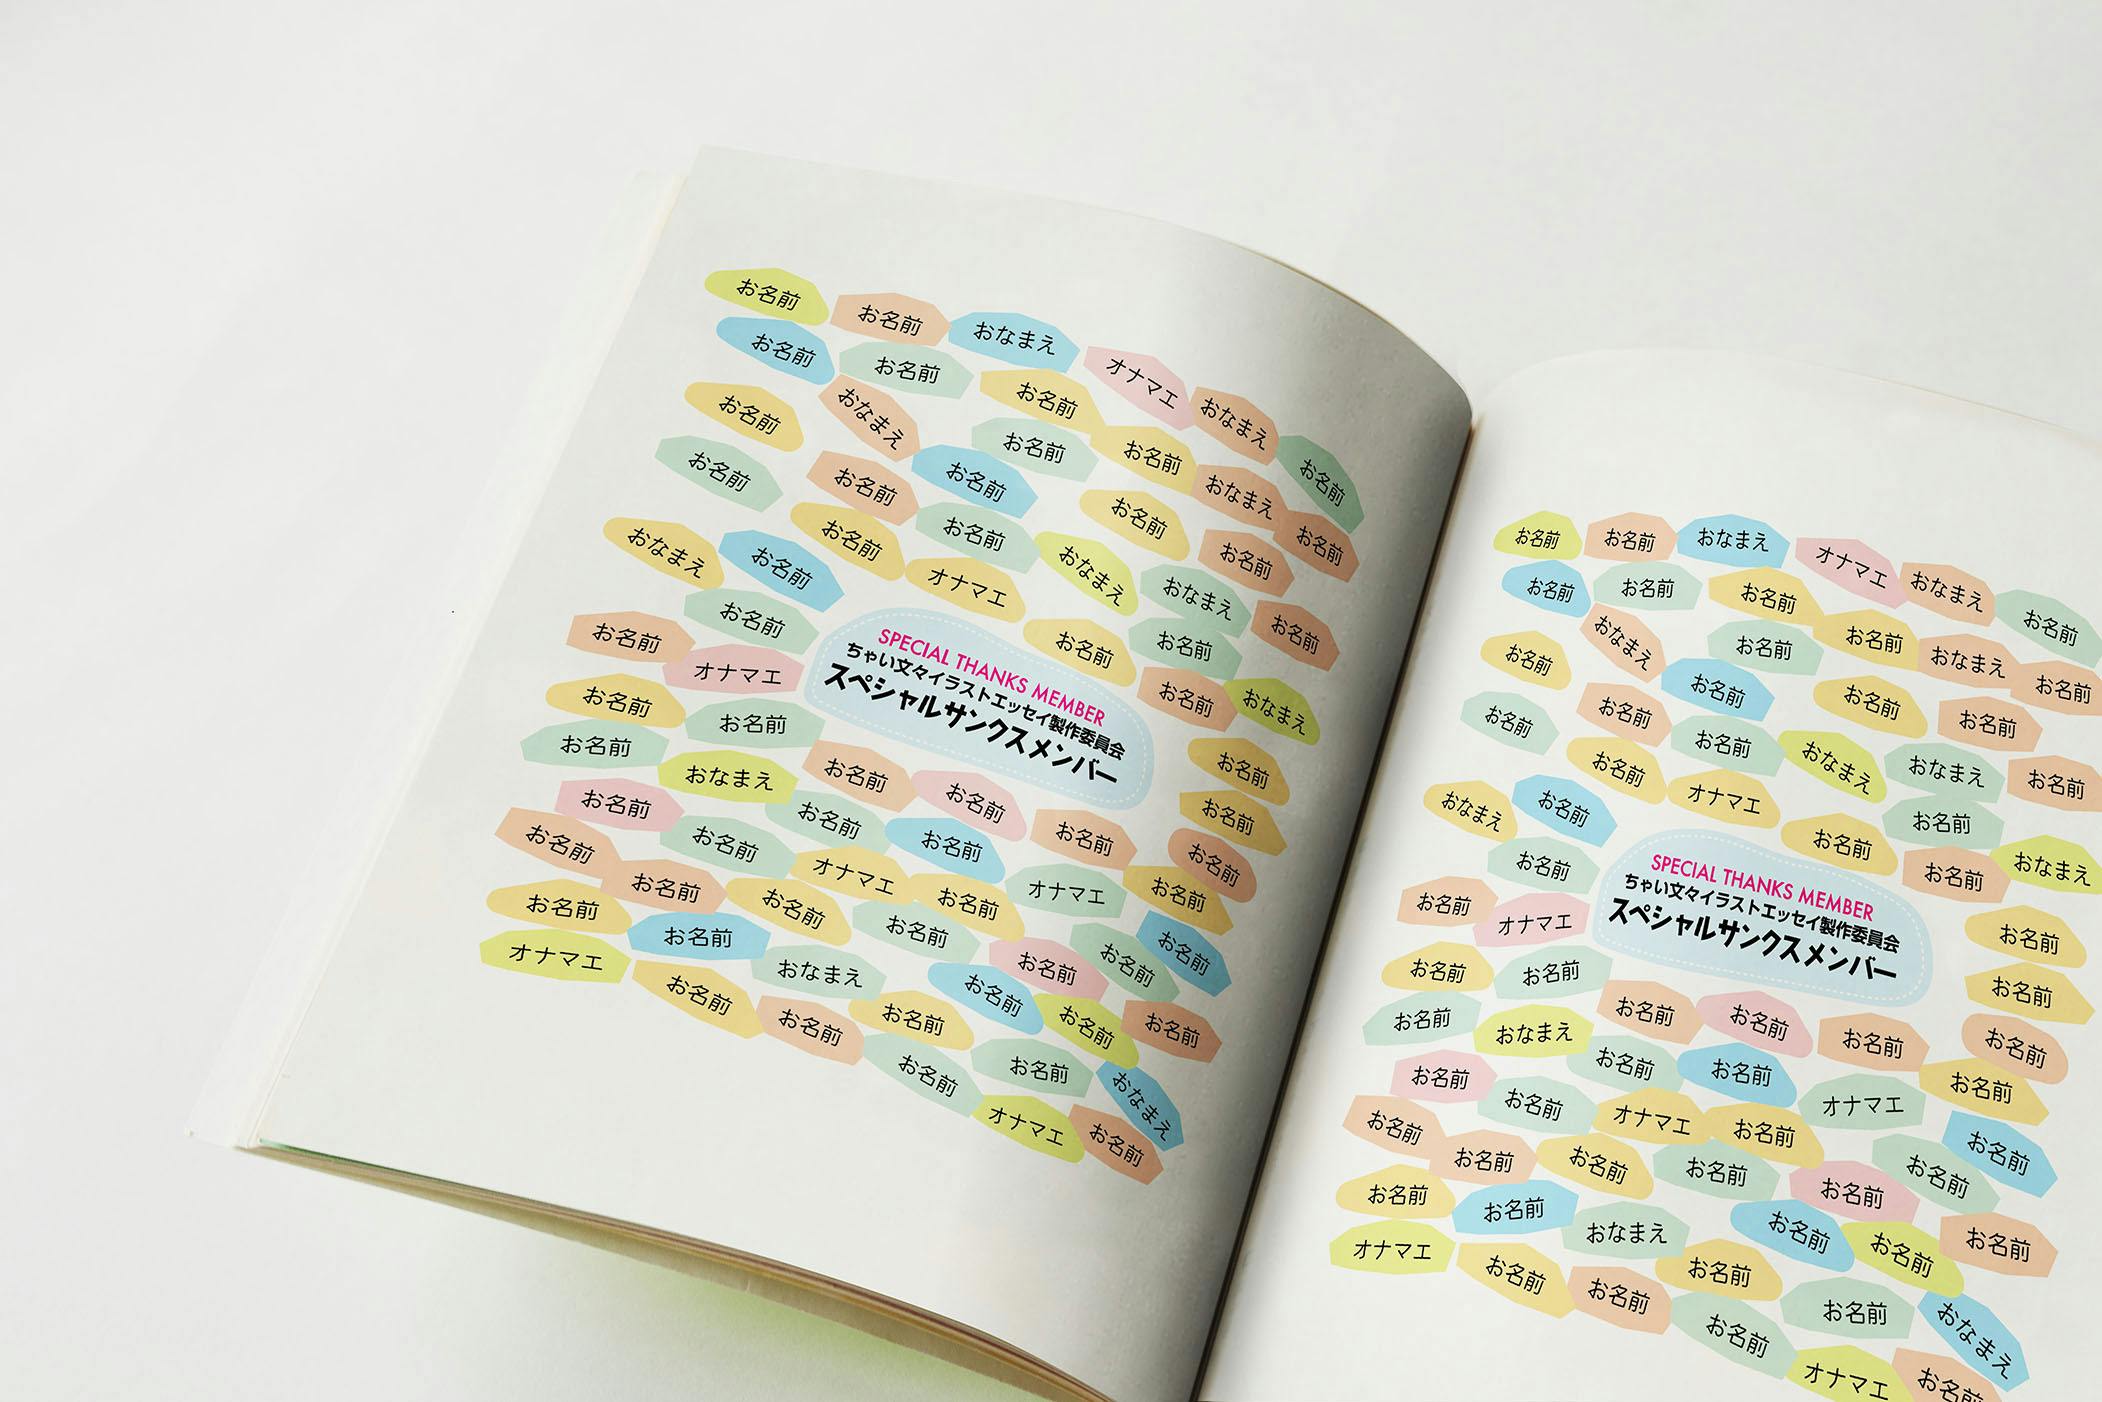 お名前
お名前
おなまえ
オナマエ
おなまえ
お名前
お名前
お名前
お名前
お名前
おなまえ
お名前
お名前
おなまえ
お名前
お名前
お名前
お名前
お名前
お名前
お名前
お名前
お名前
おなまえ
おなまえ
おなまえ
お名前
オナマエ
お名前
お名前
お名前
お名前
おなまえ
お名前
オナマエ
SPECIAL THANKS MEMBER
ちゃい文々イラストエッセイ製作委員会
スペシャルサンクスメンバー
お名前
お名前
お名前
お名前
おなまえ
お名前
お名前
お名前
お名前
お名前
お名前
お名前
お名前
お名前
お名前
オナマエ
お名前
オナマエ
お名前
お名前
お名前
お名前
お名前
お名前
お名前
おなまえ
お名前
お名前
オナマエ
お名前
お名前
お名前
お名前
お名前
お名前
お名前
お名前
おなまえ
オナマエ
お名前
お名前
お名前
おなまえ
オナマエ
おなまえ
お名前
お名前
お名前
お名前
お名前
おなまえ
お名前
お名前
おなまえ
お名前
お名前
お名前
お名前
お名前
お名前
お名前
お名前
お名前
おなまえ
おなまえ
おなまえ
お名前
オナマエ
お名前
お名前
お名前
お名前
おなまえ
お名前
オナマエ
SPECIAL THANKS MEMBER
ちゃい文々イラストエッセイ製作委員会
スペシャルサンクスメンバー
お名前
お名前
お名前
お名前
おなまえ
お名前
お名前
お名前
お名前
お名前
お名前
お名前
お名前
お名前
お名前
オナマエ
お名前
オナマエ
お名前
お名前
お名前
お名前
お名前
お名前
お名前
おなまえ
お名前
お名前
オナマエ
お名前
お名前
お名前
お名前
お名前
お名前
お名前
お名前
おなまえ
オナマエ
お名前